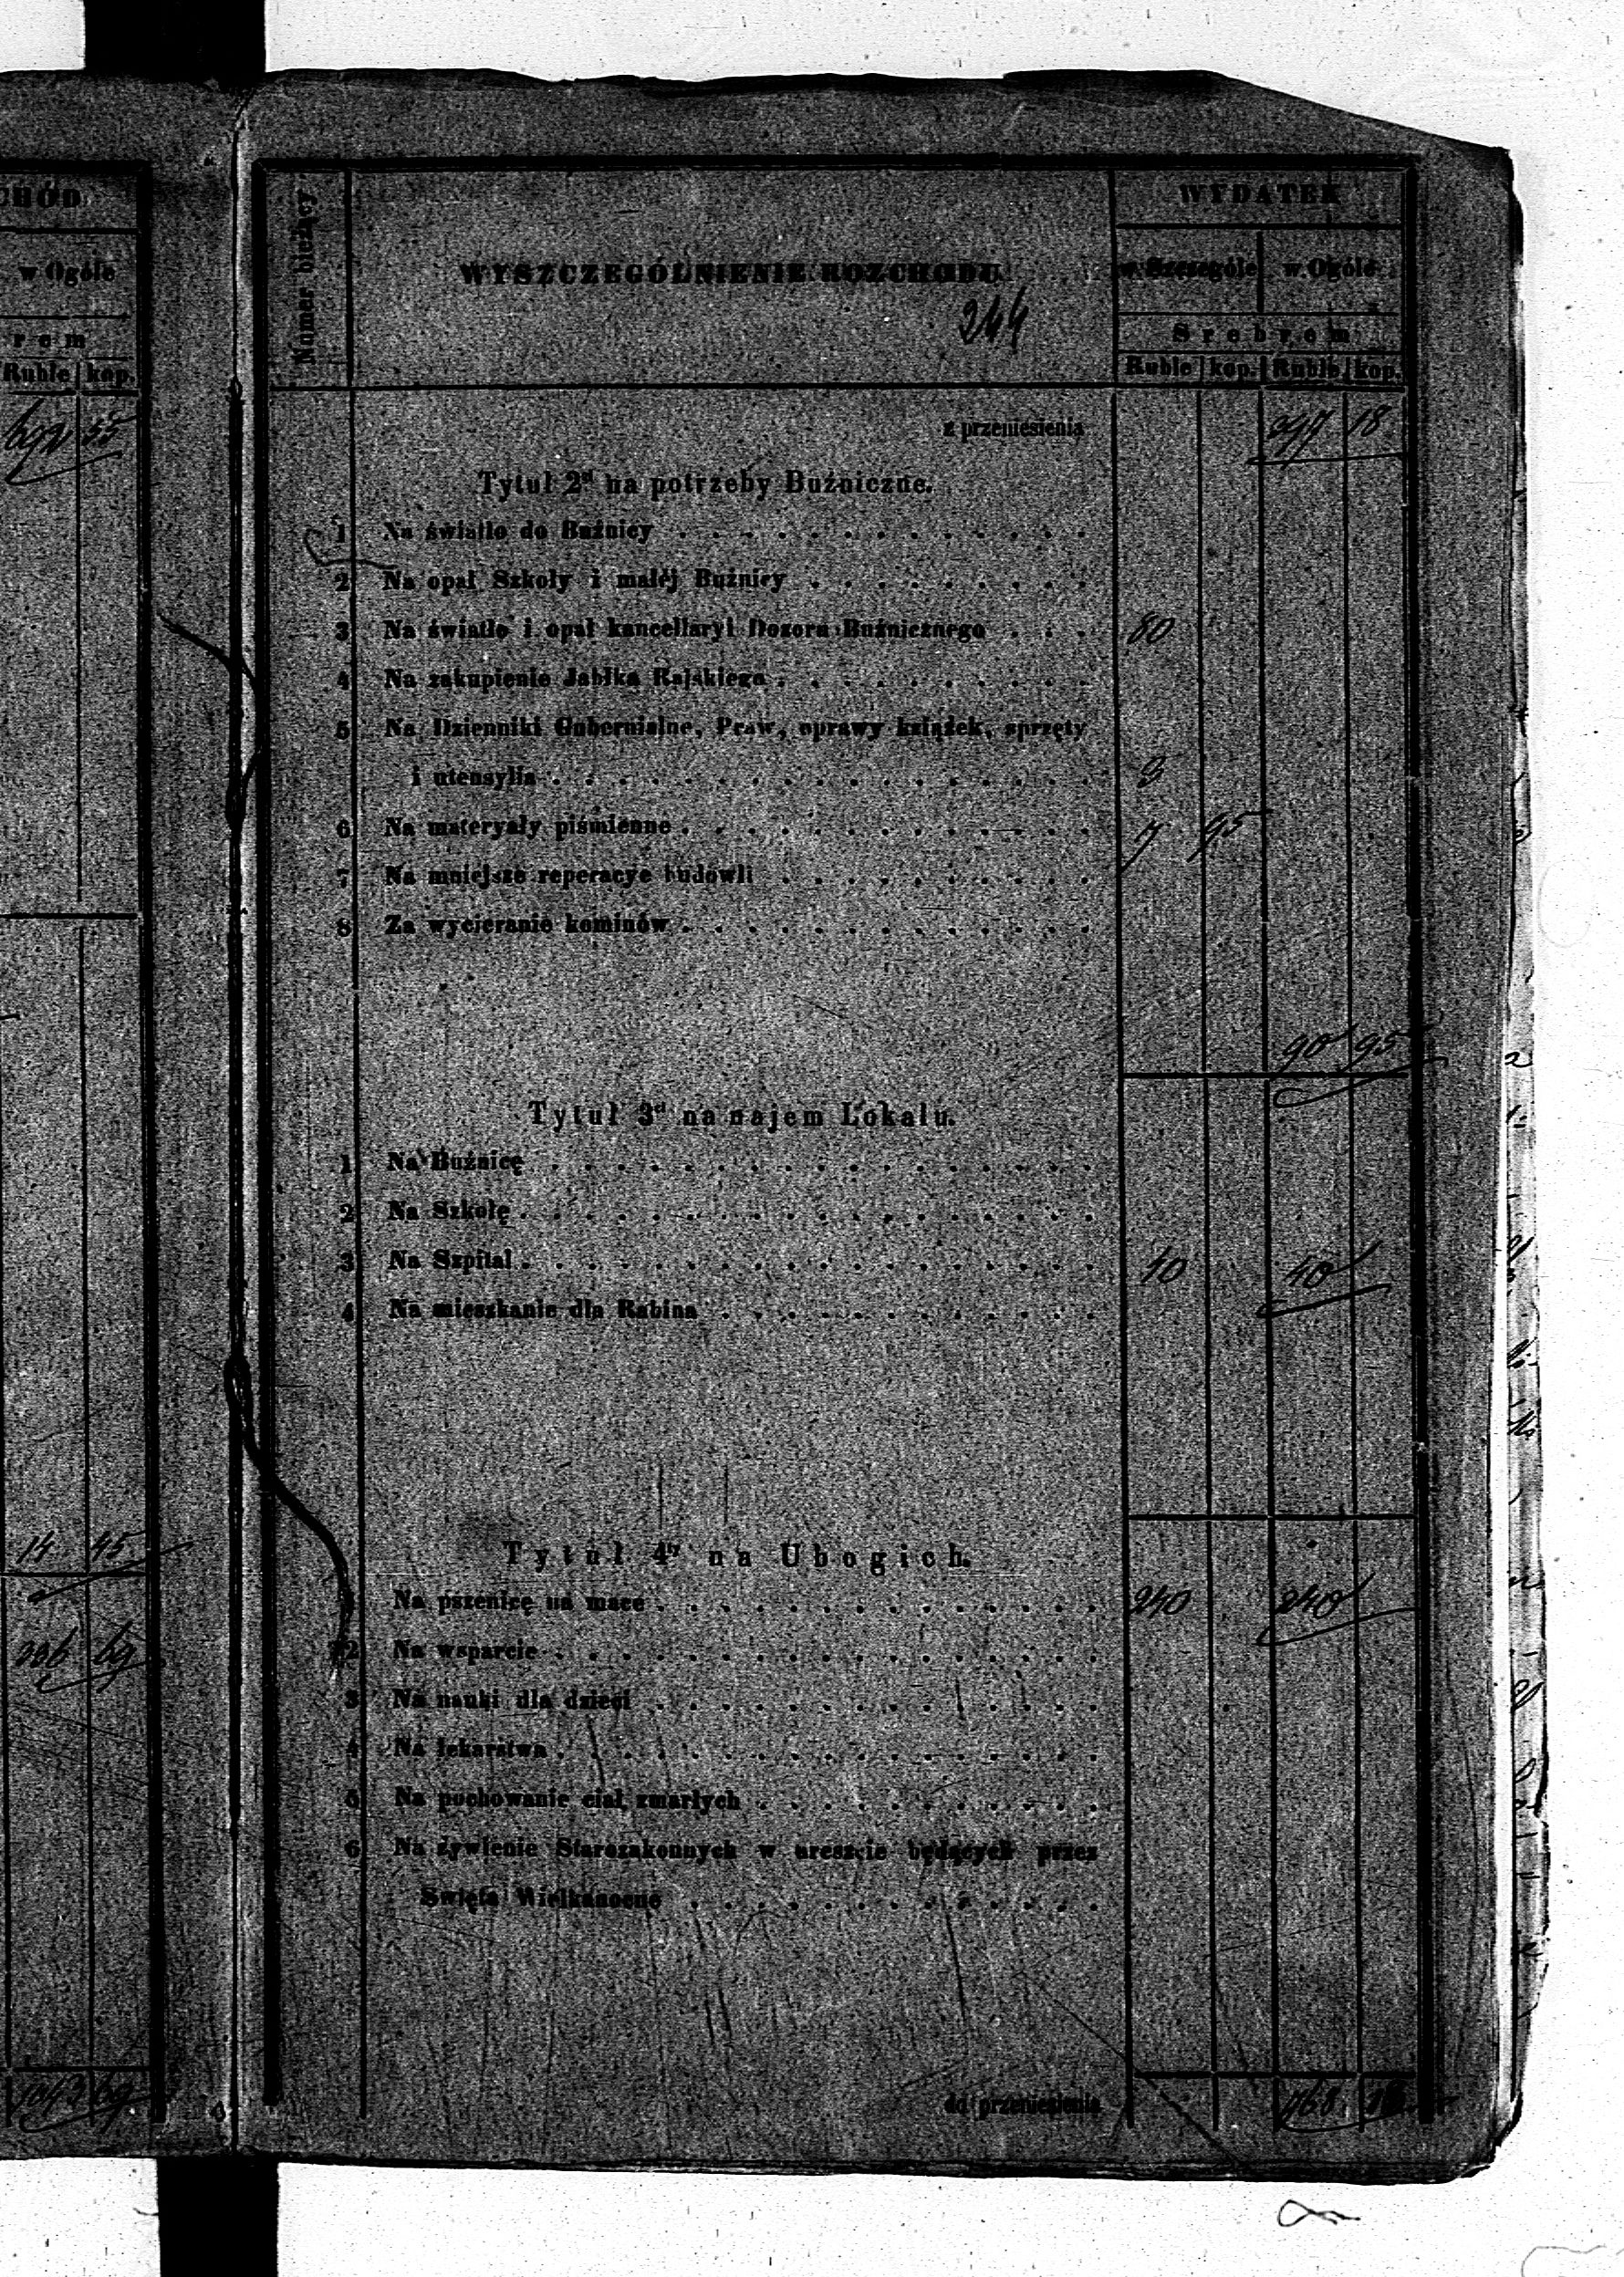 CHÓD
w Ogóle
rem
Ruble kop.
692 55
14 45
1047 69
Numer bieżący
WYSZCZEGÓLNIENIE ROZCHODU
244
WYDATEK
w Szczególe w Ogóle
Srebrem
Ruble kop. Ruble kop.
z przeniesienia 397 18
Tytuł 2ᵈ na potrzeby Bużniczne.
1 Na światło do Bużnicy
2 Na opał Szkoły i małéj Bużnicy
3 Na światło i opał kancellaryi Dozoru Bużnicznego 80
4 Na zakupienie Jabłka Rajskiego
5 Na Dzienniki Gubernialne, Praw, oprawy książek, sprzęty
i utensylia 3
6 Na materyały piśmienne 7 95
7 Na mniejsze reperacye budowli
8 Za wycieranie kominów
90 95
Tytuł 3ᵈ na najem Lokalu.
1 Na Bużnicę
2 Na Szkołę
3 Na Szpital 40 40
4 Na mieszkanie dla Rabina
Tytuł 4ᵗʸ na Ubogich.
Na pszenicę na mace 240 240
2 Na wsparcie
3 Na nauki dla dzieci
4 Na lekarstwa
5 Na pochowanie ciał zmarłych
6 Na żywienie Starozakonnych w areszcie będących przez
Święta Wielkanocne
do przeniesienia 768 13